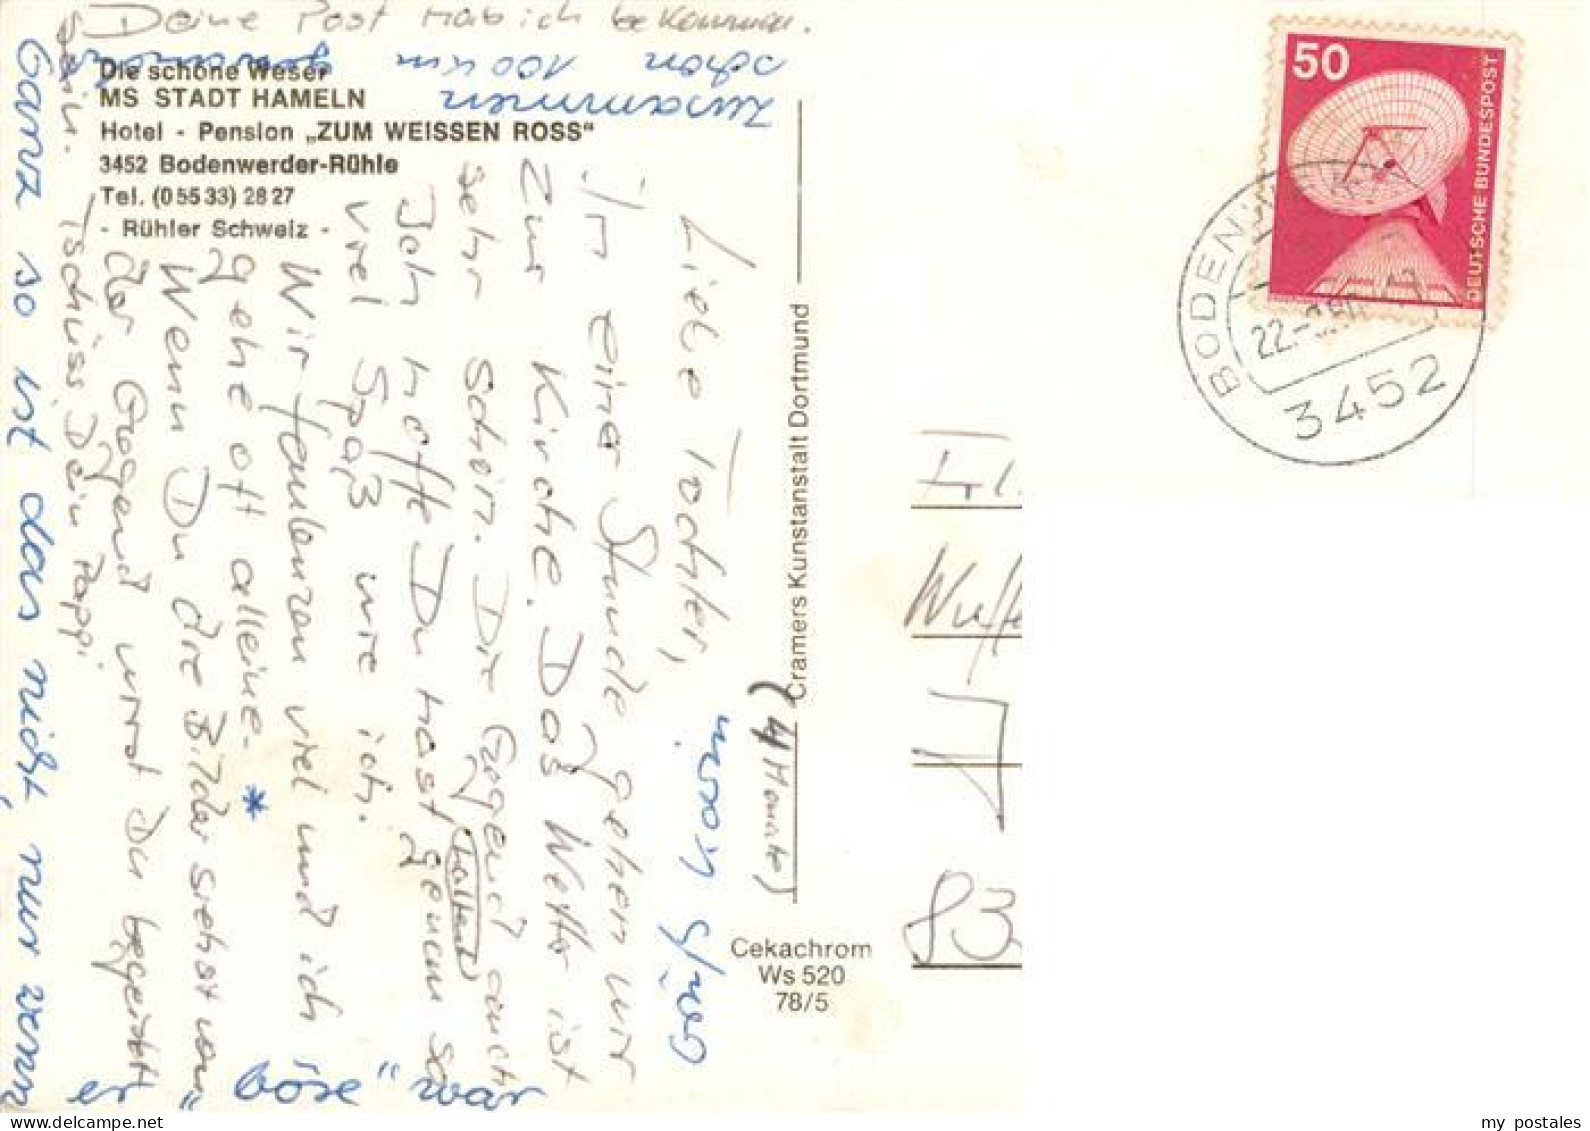 Deine Post hab ich bekommen.
Die schöne Weser
MS STADT HAMELN
Hotel - Pension „ZUM WEISSEN ROSS“
3452 Bodenwerder-Rühle
Tel. (0 55 33) 28 27
- Rühler Schweiz -
Liebe Tochter,
In einer Stunde gehen wir
zur Kirche. Das Wetter ist
sehr schön. Die Gegend auch
Ich hoffe Du hast genau so
viel Spaß wie ich.
Wir faulenzen viel und ich
gehe oft alleine. *
Wenn Du die Bilder siehst von
der Gegend wirst Du begeistert
sein. Tschüss Dein Pappi
* Ganz so ist das nicht, nur wenn
er „böse“ war
Grüß
schon 100 km
zusammen
(4 Monate)
Cramers Kunstanstalt Dortmund
Cekachrom
Ws 520
78/5
50
DEUTSCHE BUNDESPOST
BODENWERDER
22.-
3452
Frl.
83
my postales